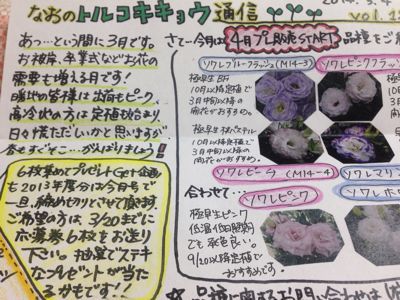 なおのトルコキキョウ通信
2014.3.4
vol.12
あっ…という間に3月です。
お彼岸、卒業式などお花の
需要も増える月です！
暖地の皆様は出荷もピーク、
高冷地の方は定植も始まり、
日々慌ただしいかと思いますが
がんばりましょう！
6枚集めてプレゼントGet企画
も2013年度分は今月号で
一旦、締め切りとさせて頂きます。
ご希望の方は3/20までに
応募券6枚をお送り
下さい。抽選でステキ
なプレゼントが当た
るかもです!!
さて…今月は
4月プレ販売START
品種をご
ソワレブルーフラッシュ(M14-3)
極早生
10月以降定植で
3月中旬以降の
開花がおすすめ。
極早生
10月以降定植で
3月中旬以降の
開花がおすすめ。
ソワレピンクフラッシュ
(M14-4)
合わせて…
ソワレピンク
極早生ピンク
低温低日照期
でも発色良い。
9/20以降定植で
おすすめです。